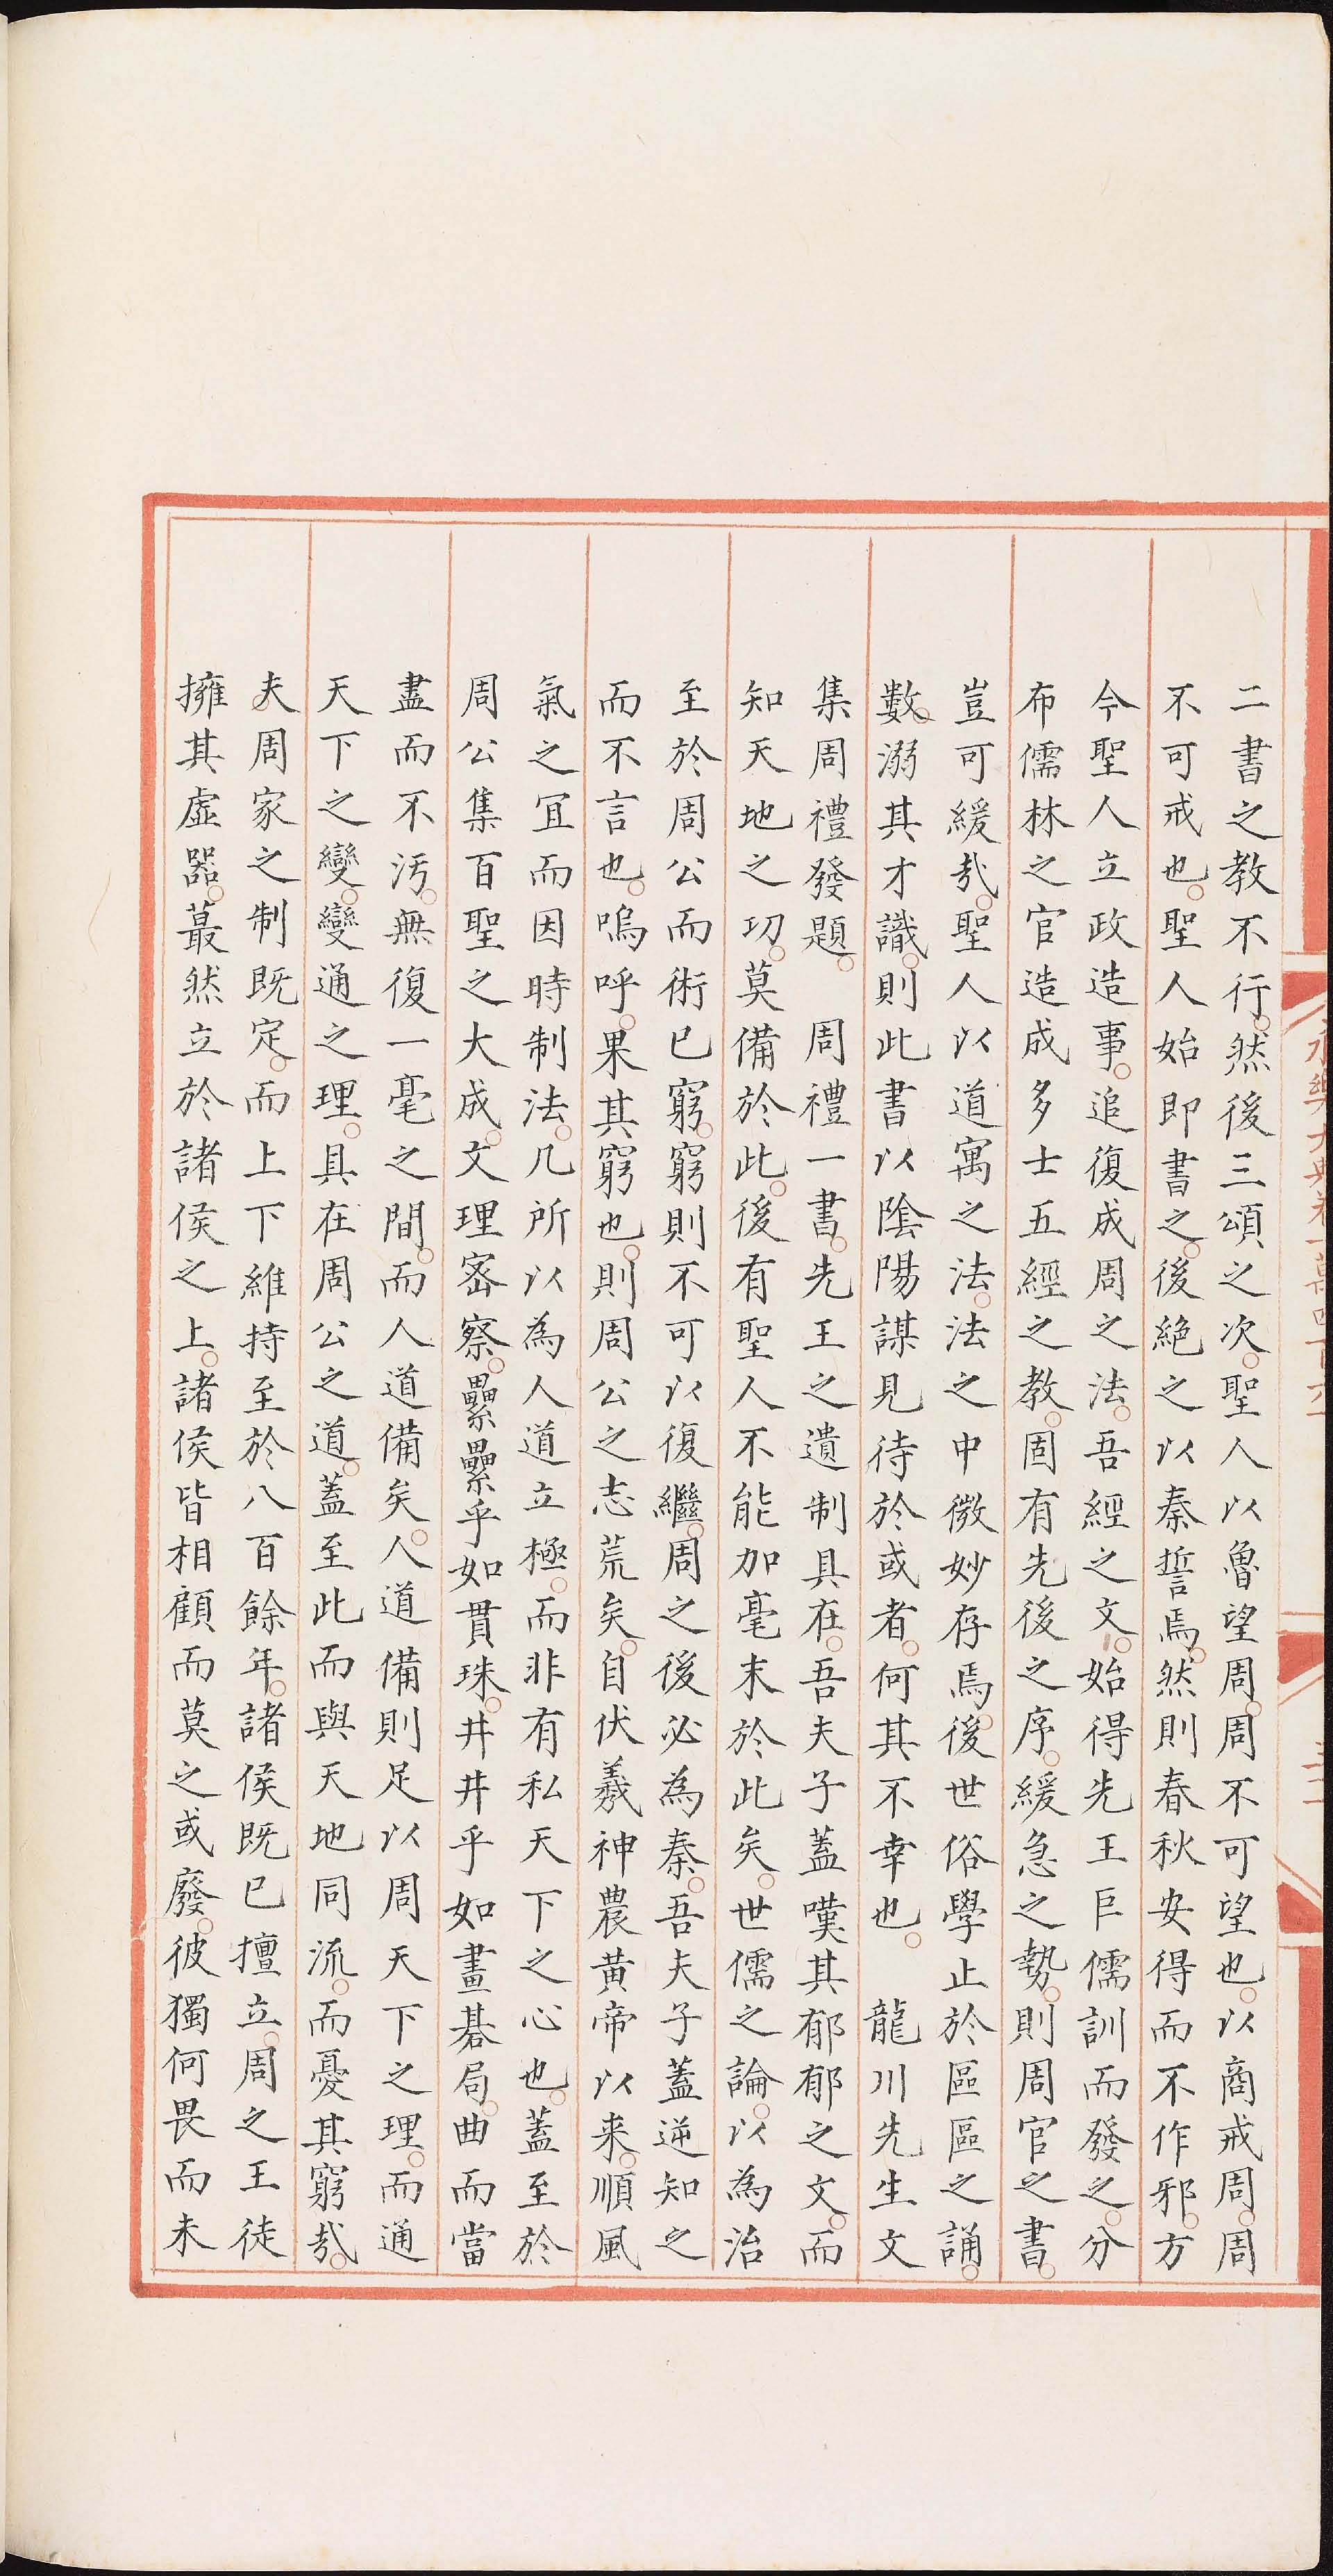 永樂大典卷一萬四百六十
二書之教不行。然後三頌之次。聖人以魯望周。周不可望也。以商戒周。周
不可戒也。聖人始即書之。後絶之以秦誓焉。然則春秋安得而不作邪。方
今聖人立政造事。追復成周之法。吾經之文。始得先王巨儒訓而發之。分
布儒林之官造成多士五經之教。固有先後之序。緩急之勢。則周官之書。
豈可緩哉。聖人以道寓之法。法之中微妙存焉。後世俗學止於區區之誦。
數。溺其才識。則此書以陰陽謀見待於或者。何其不幸也。　龍川先生文
集周禮發題。　周禮一書。先王之遺制具在。吾夫子蓋嘆其郁郁之文。而
知天地之功。莫備於此。後有聖人不能加毫末於此矣。世儒之論。以為治
至於周公而術已窮。窮則不可以復繼。周之後必為秦。吾夫子蓋逆知之
而不言也。嗚呼。果其窮也。則周公之志荒矣。自伏羲神農黄帝以来。順風
氣之宜而因時制法。凡所以為人道立極。而非有私天下之心也。蓋至於
周公集百聖之大成。文理宻察。纍纍乎如貫珠。井井乎如畫碁局。曲而當
盡而不汚。無復一毫之間。而人道備矣。人道備則足以周天下之理。而通
天下之變。變通之理。具在周公之道。蓋至此而與天地同流。而憂其窮哉。
夫周家之制既定。而上下維持至於八百餘年。諸侯既已擅立。周之王徒
擁其虛器。蕞然立於諸侯之上。諸侯皆相顧而莫之或廢。彼獨何畏而未